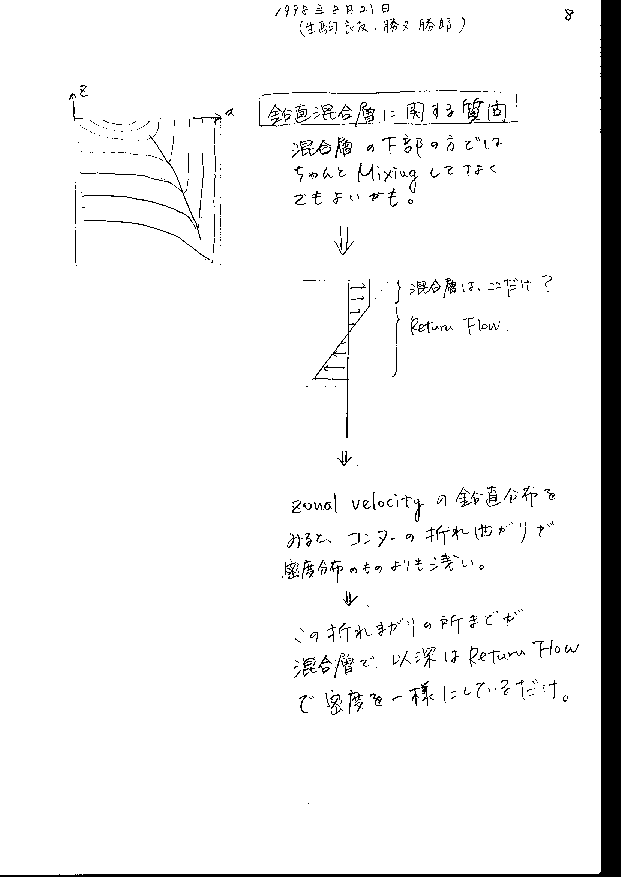 1998年8月21日 8
(生駒 , 勝又 勝郎)
z
x
鉛直混合層に関する質問
混合層の下部の方では
ちゃんと Mixing してなく
てもよいかも。
⇓
混合層は、ここだけ?
Return Flow.
⇓
zonal velocity の鉛直分布を
みると、コンターの折れ曲がりが
密度分布のものよりも浅い。
⇓
この折れまがりの所までが
混合層で、以深は Return Flow
で密度を一様にしているだけ。